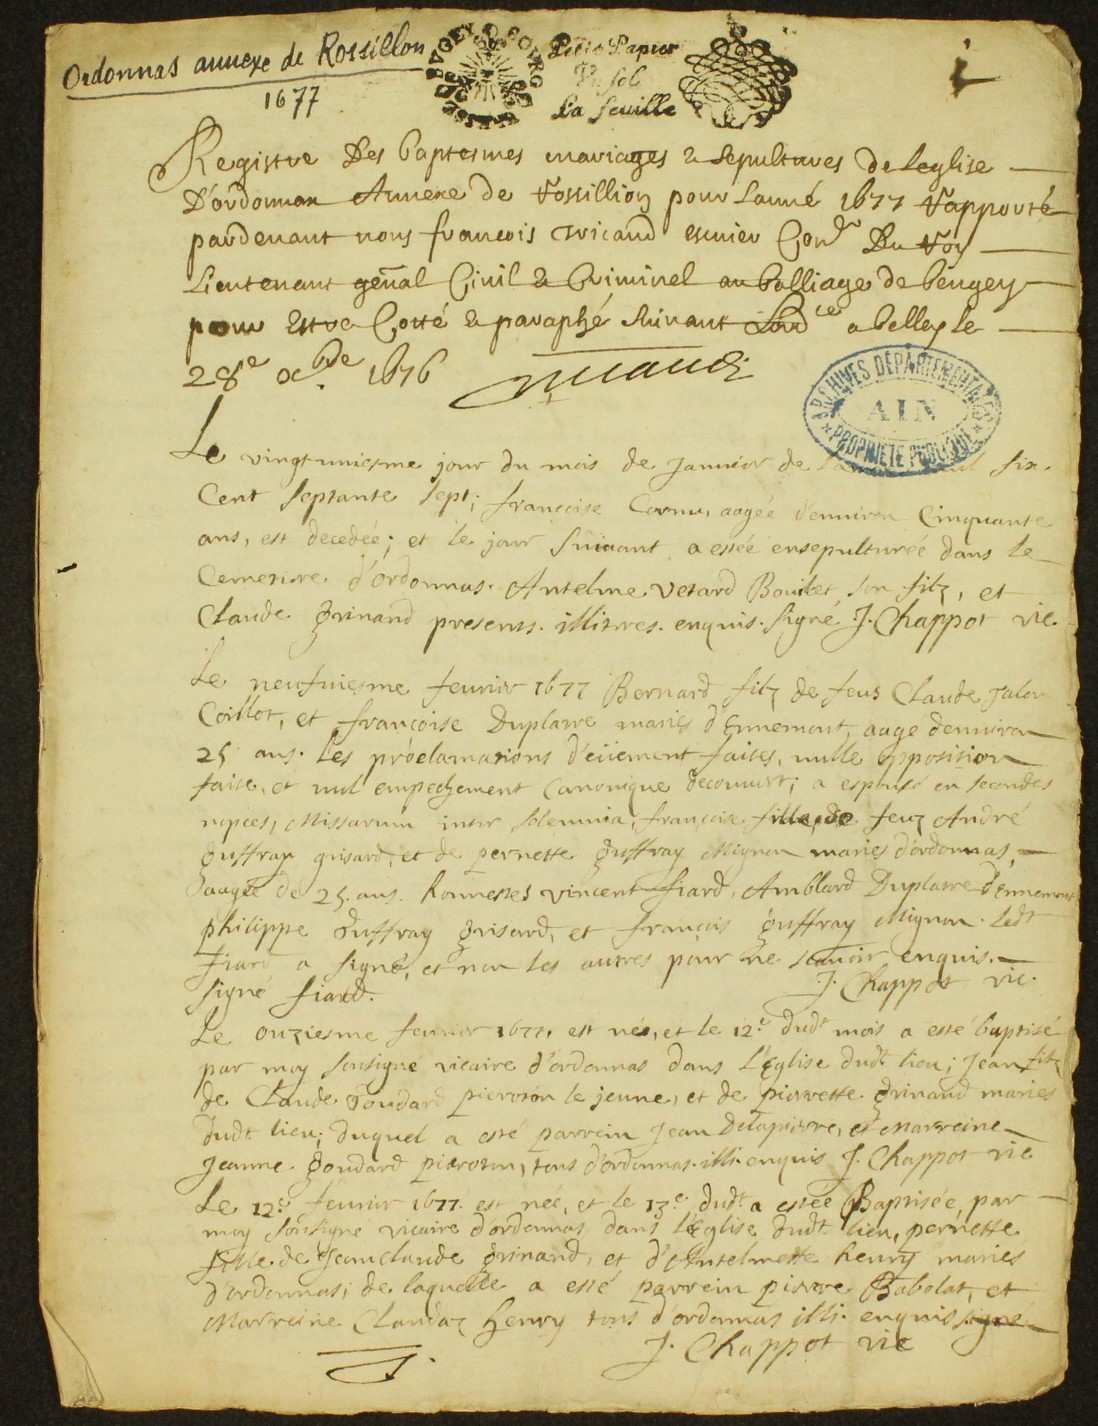 Ordonnas annexe de Rossillon
1677
BUGEY BOURG
Petit Papier
Un sol
La feuille
Registre Des baptesmes mariages & sepultures de leglise
D'ordonnan Annexe de Rossillion pour Lanné 1677 Rapporté
pardenant nous francois escuier Con.r Du Roy
Lieutenant gen̄al Civil & Criminel au balliage de beugey
pour Estre Cotté & paraphé suivant Lord.ce a belley le
28e oc.bre 1676
ARCHIVES DÉPARTEMENTALES
AIN
PROPRIÉTÉ PUBLIQUE
Le vingt uniesme jour du mois de Janvier de six
Cent septante sept; françoise Cornu, aagée d'environ Cinquante
ans, est decedée; et le jour suivant a estée ensepulturée dans le
Cemetiere d'ordonnas. Antelme Vetard Bouilet son filz, et
Claude grinand presents. illitres. enquis. signé J. Chappot vic.
Le neufviesme fevrier 1677 Bernard filz de feuz Claude
Coillot, et françoise Duplatre mariés d'Ennemont, aagé d'environ
25 ans. Les proclamations d'eüement faites, nulle opposition
faite, et nul empechement Canonique decouvert; a espousé en secondes
nopces, Missarum inter solemnia, françoise fille de feuz André
guffray grisard, et de pernette guffray Mignon mariés d'ordonnas,
aagée de 25. ans. honnestes vincent fiard, Amblard Duplatre d'Ennemont
philippe guffray grisard, et françois guffray Mignon. ledt
fiard a signé, et non les autres pour ne scavoir enquis.
signé fiard. J. Chappot vic.
Le onziesme fevrier 1677. est né, et le 12.e dudt mois a esté baptisé
par moy sousigné vicaire d'ordonnas dans l'Eglise dudt lieu; Jean filz
de Claude goudard pieroton le jeune, et de pierrette grinand mariés
dudt lieu; duquel a esté parrein Jean Delapierre, et Marreine
Jeanne goudard pieroton, tous d'ordonnas. illi. enquis J. Chappot vic
Le 12.e fevrier 1677. est née, et le 13.e dudt a estée Baptisée, par
moy sousigné vicaire d'ordonnas dans l'Eglise dudt lieu, pernette
fille de Jeanclaude grinand, et d'Antelmette henry mariés
d'ordonnas; de laquelle a esté parrein pierre Babolat, et
Marreine Claudaz henry tous d'ordonnas illi. enquis signé
J. Chappot vic